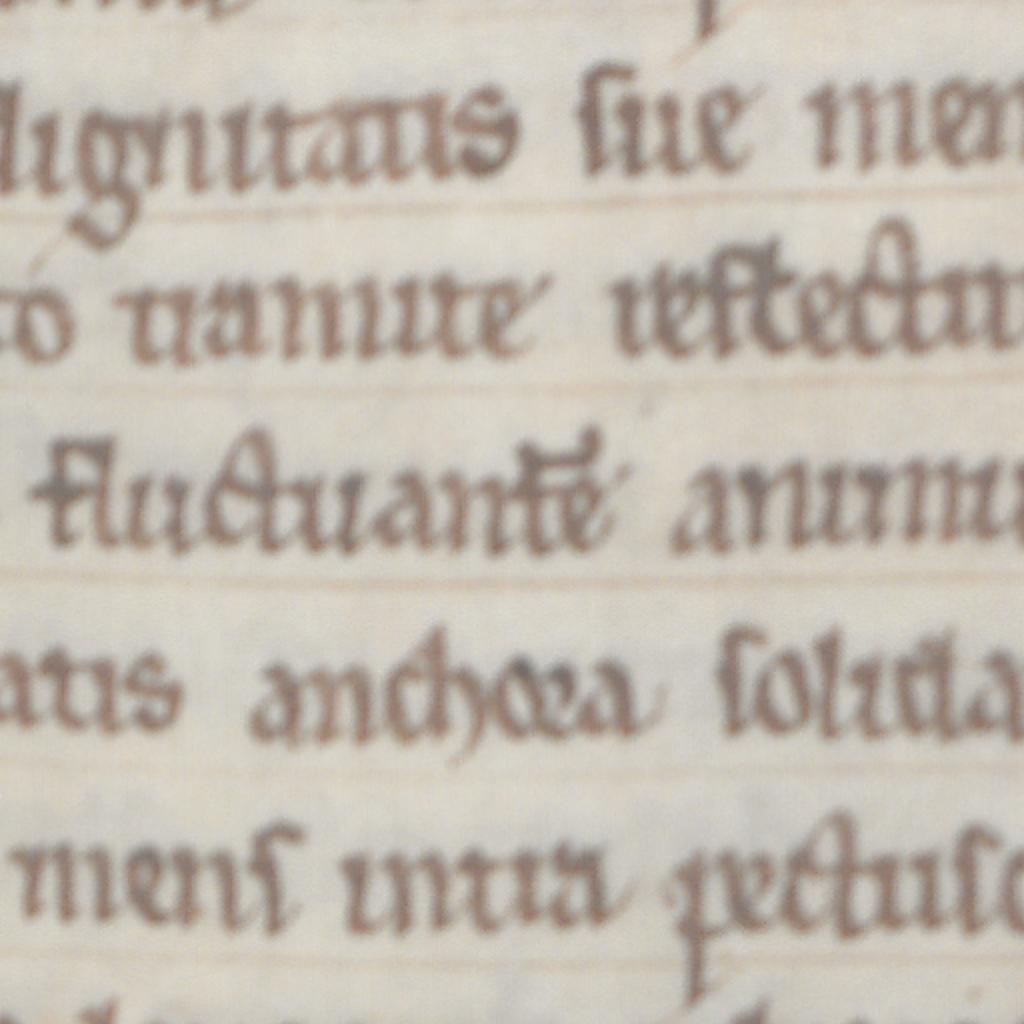 dignitatis sue men
to tramite reflectitur
fluctuantē animu
atis anchora solida
mens intra pectusc